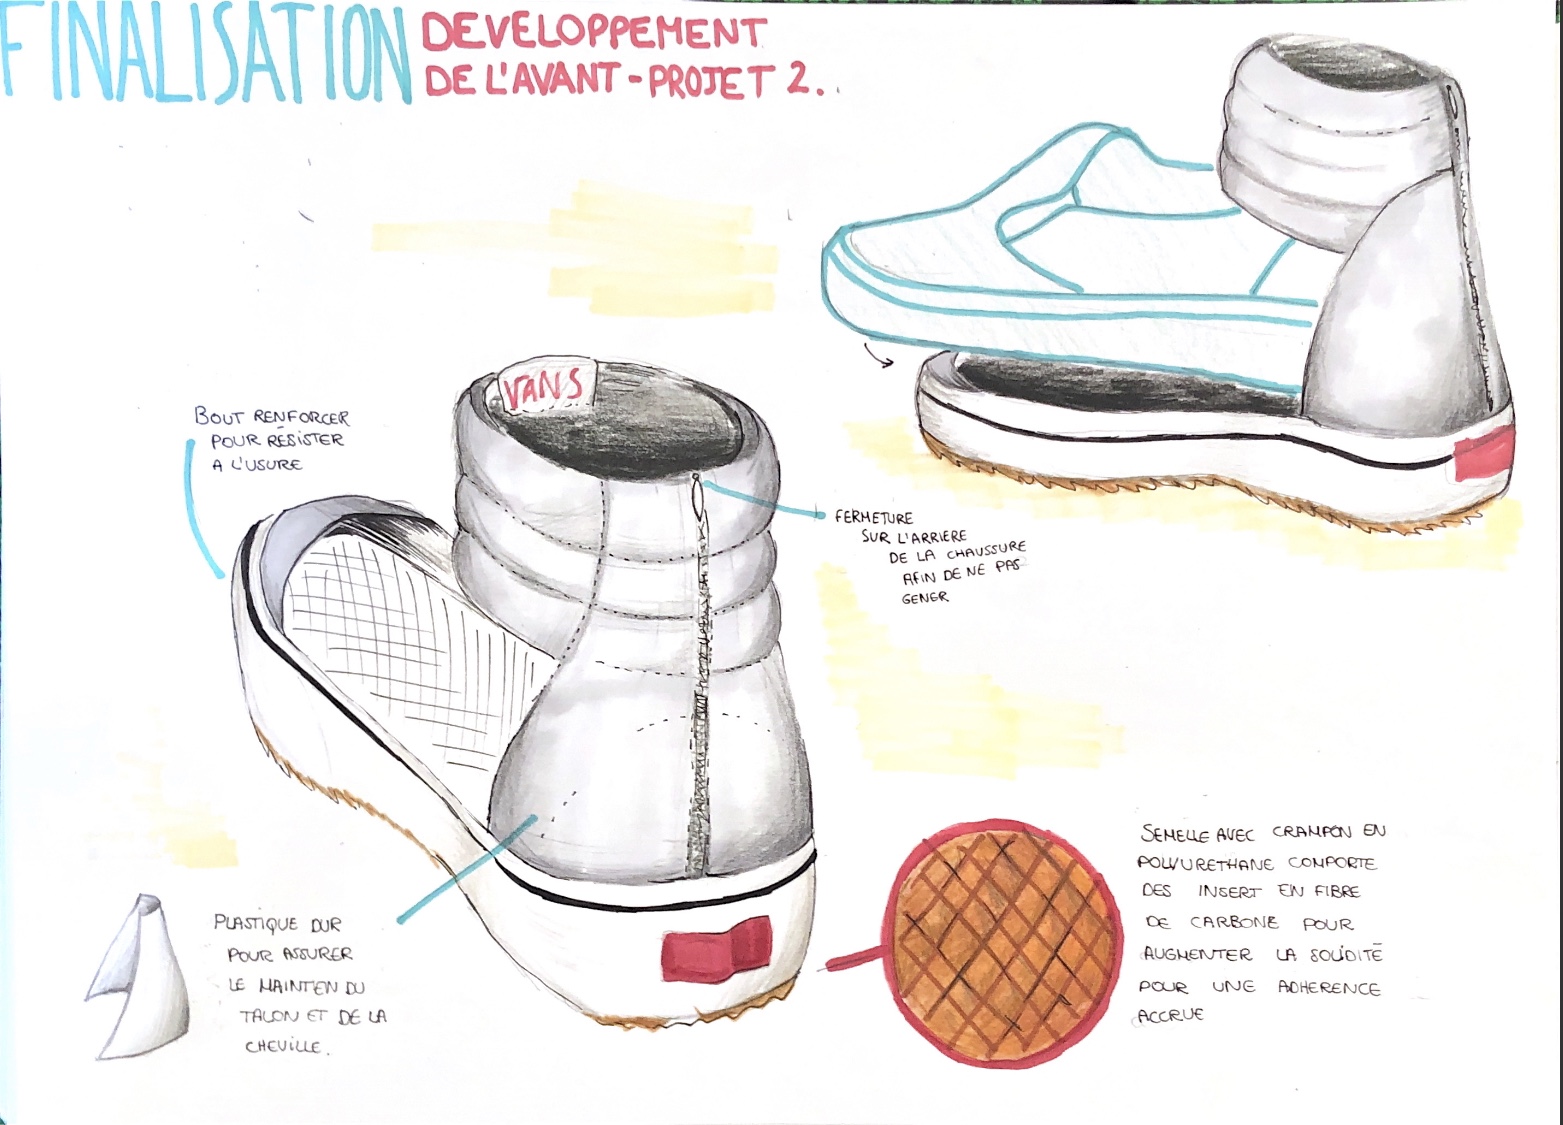 FINALISATION
DEVELOPPEMENT
DE L'AVANT-PROJET 2.
VANS
BOUT RENFORCER
POUR RÉSISTER
A L'USURE
FERMETURE
SUR L'ARRIERE
DE LA CHAUSSURE
AFIN DE NE PAS
GENER
PLASTIQUE DUR
POUR ASSURER
LE MAINTIEN DU
TALON ET DE LA
CHEVILLE.
SEMELLE AVEC CRAMPON EN
POLYURETHANE COMPORTE
DES INSERT EN FIBRE
DE CARBONE POUR
AUGMENTER LA SOLIDITÉ
POUR UNE ADHERENCE
ACCRUE